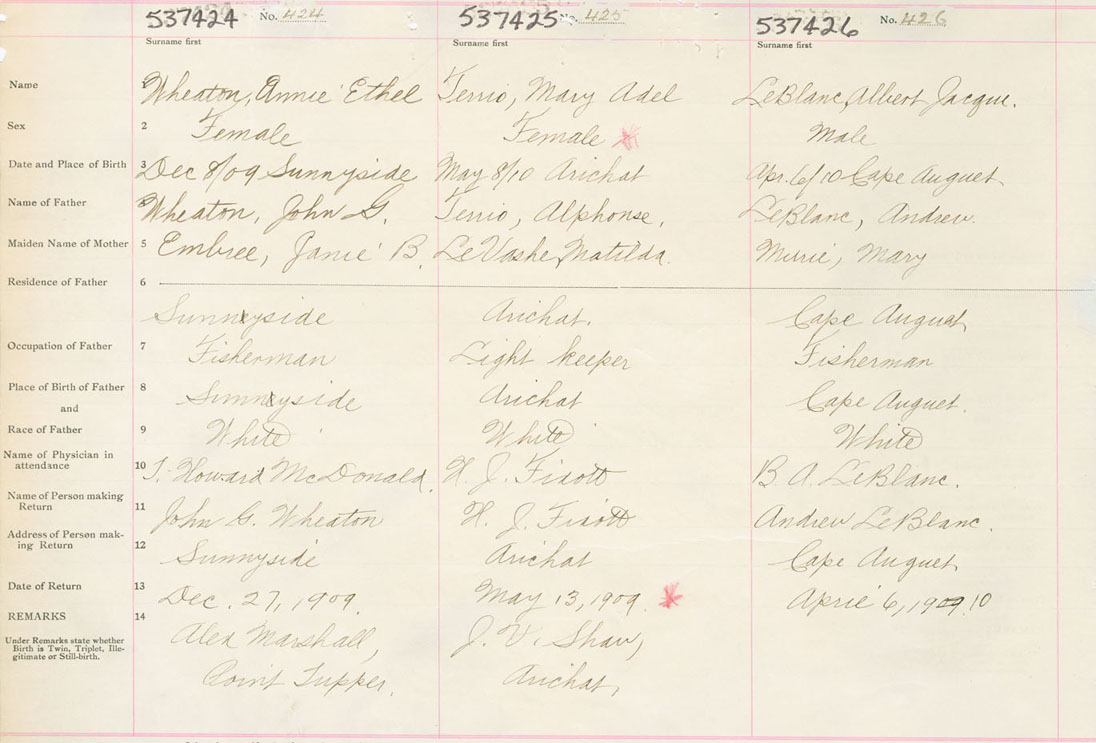 537424 No. 424 537425 No. 425 537426 No. 426
Surname first Surname first Surname first
Name 1 Wheaton, Annie Ethel Terrio, Mary Adel LeBlanc, Albert Jacque.
Sex 2 Female Female Male
Date and Place of Birth 3 Dec 8/09 Sunnyside May 8/10 Arichat Apr. 6/10 Cape Auguet
Name of Father 4 Wheaton, John G. Terrio, Alphonse, LeBlanc, Andrew.
Maiden Name of Mother 5 Embree, Janie B. LeVashe, Matilda. Mary
Residence of Father 6
Sunnyside Arichat. Cape Auguet
Occupation of Father 7 Fisherman Light keeper Fisherman
Place of Birth of Father 8 Sunnyside Arichat Cape Auguet.
and
Race of Father 9 White White White
Name of Physician in
attendance 10 T. Howard McDonald. H. J. Fixott B. A. LeBlanc.
Name of Person making
Return 11 John G. Wheaton H. J. Fixott Andrew LeBlanc.
Address of Person mak-
ing Return 12 Sunnyside Arichat Cape Auguet
Date of Return 13 Dec. 27, 1909. May 13, 1909. April 6, 1909 10
REMARKS 14
Under Remarks state whether
Birth is Twin, Triplet, Ille-
gitimate or Still-birth.
Alex Marshall, J. V. Shaw,
Point Tupper. Arichat,